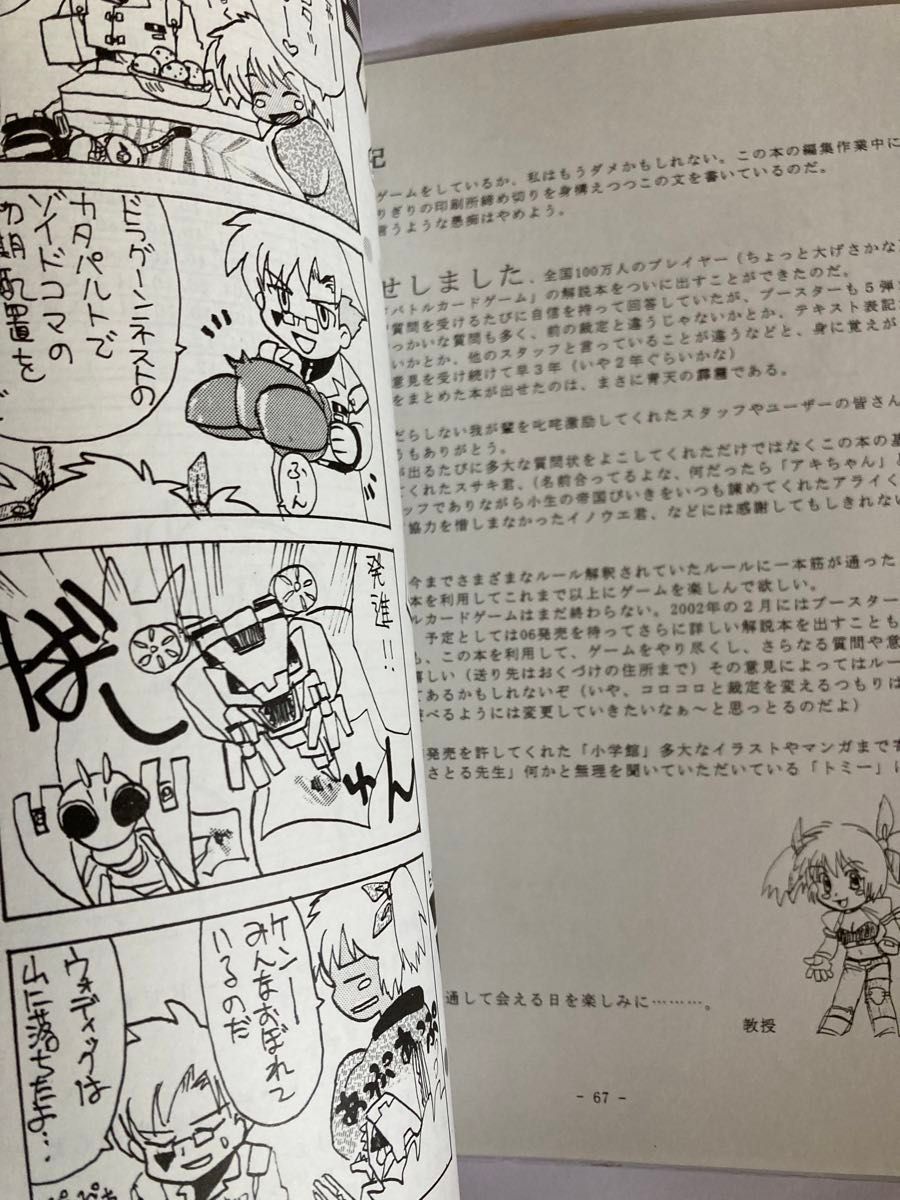 ドラグーンネストの
カタパルトで
ゾイドコマの
初期配置を
ふーん
発進!!
ケンー
みんなおぼれて
いるのだ
ウォディックは
山に落ちたよ…
記
ゲームをしているか、私はもうダメかもしれない。この本の編集作業中に
りぎりの印刷所締め切りを身構えつつこの文を書いているのだ。
言うような愚痴はやめよう。
せしました、全国100万人のプレイヤー(ちょっと大げさかな)
バトルカードゲーム」の解説本をついに出すことができたのだ。
質問を受けるたびに自信を持って回答していたが、ブースターも5弾
っかいな質問も多く、前の裁定と違うじゃないかとか、テキスト表記
いかとか、他のスタッフと言っていることが違うなどと、身に覚えが
意見を受け続けて早3年(いや2年ぐらいかな)
をまとめた本が出せたのは、まさに青天の霹靂である。
だらしない我が輩を叱咤激励してくれたスタッフやユーザーの皆さん
うもありがとう。
が出るたびに多大な質問状をよこしてくれただけではなくこの本の基
てくれたスサキ君、(名前合ってるよな、何だったら「アキちゃん」と
ッフでありながら小生の帝国びいきをいつも諫めてくれたアライく
協力を惜しまなかったイノウエ君、などには感謝してもしきれない
今までさまざまなルール解釈されていたルールに一本筋が通った
本を利用してこれまで以上にゲームを楽しんで欲しい。
ルカードゲームはまだ終わらない。2002年の2月にはブースター
、予定としては06発売を待ってさらに詳しい解説本を出すことも
も、この本を利用して、ゲームをやり尽くし、さらなる質問や意
嬉しい(送り先はおくづけの住所まで)その意見によってはルー
てあるかもしれないぞ(いや、コロコロと裁定を変えるつもりは
べるようには変更していきたいなぁ~と思っとるのだよ)
発売を許してくれた「小学館」多大なイラストやマンガまで寄
さとる先生」何かと無理を聞いていただいている「トミー」に
通して会える日を楽しみに………。
教授
- 67 -